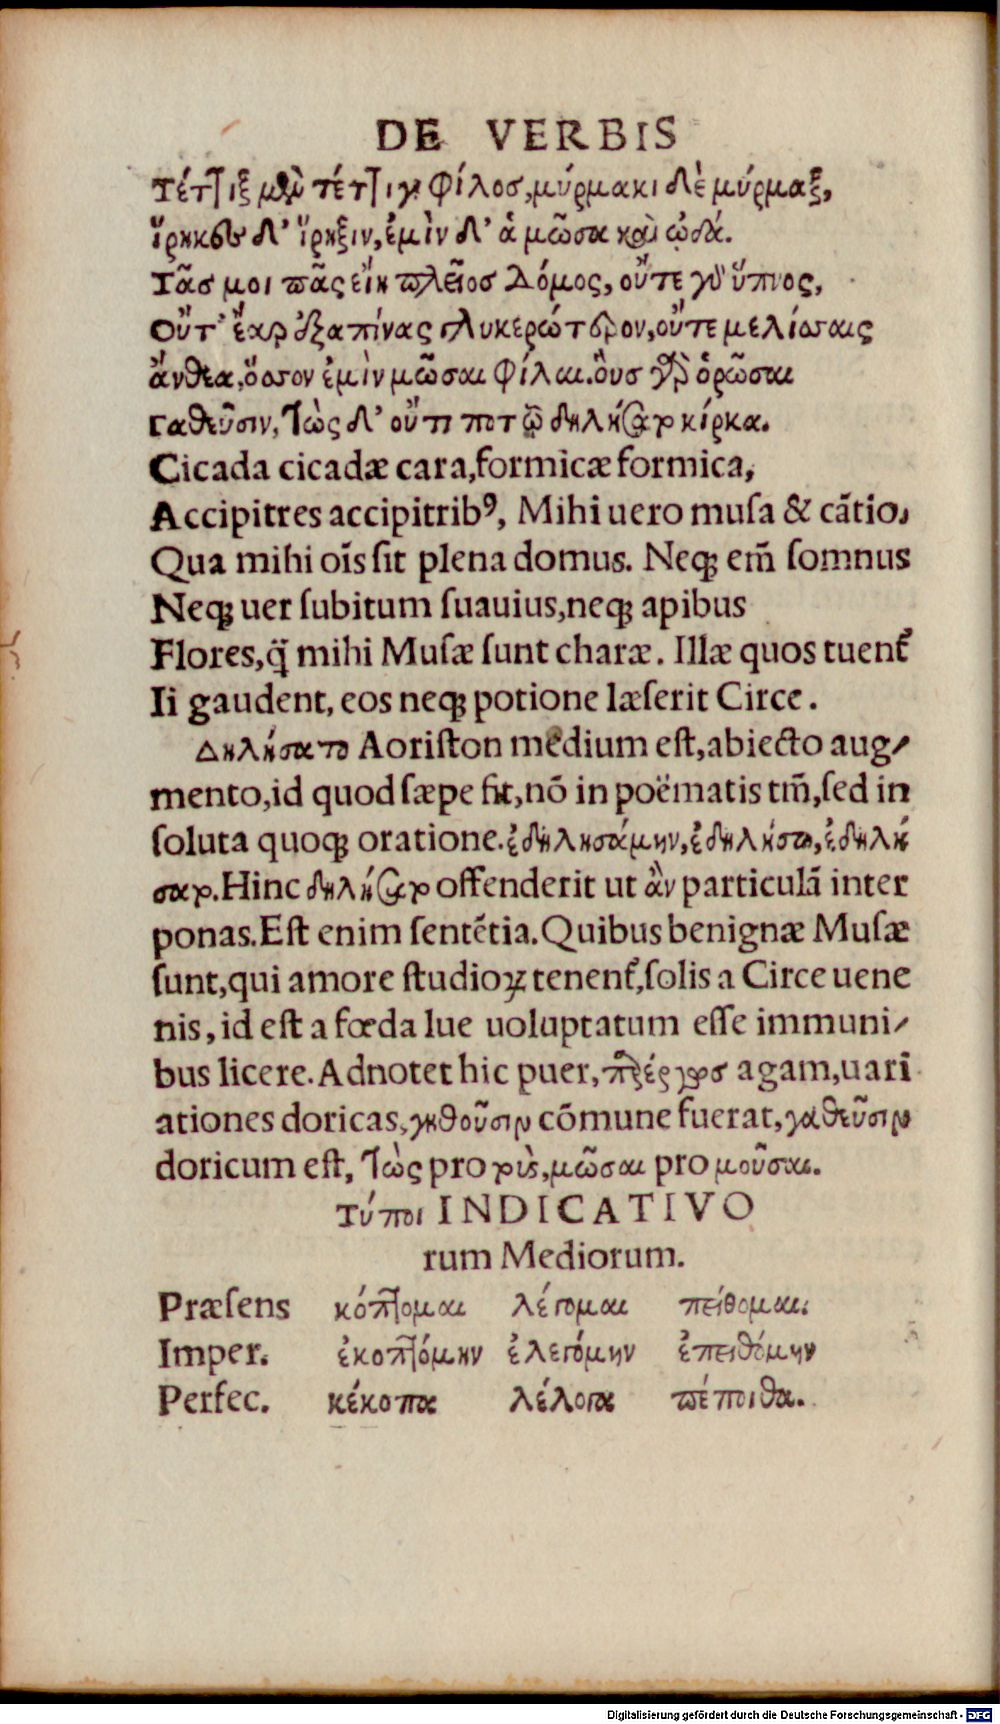 DE VERBIS
Τέτ]ιξ μὲν τέτ]ιγι φίλος, μύρμακι δὲ μύρμαξ,
ἵρηκες δ' ἵρηξιν, ἐμὶν δ' ἁ μῶσα καὶ ᾠδά.
Τᾶς μοι πᾶς εἴη πλεῖος Δόμος, οὔτε γὸ ὕπνος,
Οὔτ' ἔαρ ἐξαπίνας γλυκερώτερον, οὔτε μελίσσαις
ἄνθεα, ὅσσον ἐμὶν μῶσαι φίλαι. οὓς γὸ ὁρῶσαι
Γαθεῦσιν, τὼς δ' οὔτι ποτῷ δηλήσατο κίρκα.
Cicada cicadæ cara, formicæ formica,
Accipitres accipitribꝰ, Mihi uero muſa & cãtio,
Qua mihi oĩs ſit plena domus. Neqꝫ em̃ ſomnus
Neqꝫ uer ſubitum ſuauius, neqꝫ apibus
Flores, q̃ mihi Muſæ ſunt charæ. Illæ quos tuent᷑
Ii gaudent, eos neqꝫ potione læſerit Circe.
Δηλήσατο Aoriſton medium eſt, abiecto aug-
mento, id quod ſæpe fit, nõ in poëmatis tm̃, ſed in
ſoluta quoqꝫ oratione. ἐδηλησάμην, ἐδηλήσω, ἐδηλή
σατο. Hinc δηλήσατο offenderit ut ἂν particulã inter
ponas. Eſt enim ſentẽtia. Quibus benignæ Muſæ
ſunt, qui amore ſtudioꝝ tenent᷑, ſolis a Circe uene
nis, id eſt a fœda lue uoluptatum eſſe immuni-
bus licere. Adnotet hic puer, πάρεργος agam, uari
ationes doricas, γηθοῦσιν cõmune fuerat, γαθεῦσιν
doricum eſt, τὼς pro τοὺς, μῶσαι pro μοῦσαι.
Τύποι INDICATIVO
rum Mediorum.
Præſens κόπ]ομαι λέγομαι πείθομαι.
Imper. ἐκοπ]όμην ἐλεγόμην ἐπειθόμην
Perfec. κέκοπα λέλογα πέποιθα.
Digitalisierung gefördert durch die Deutsche Forschungsgemeinschaft - DFG